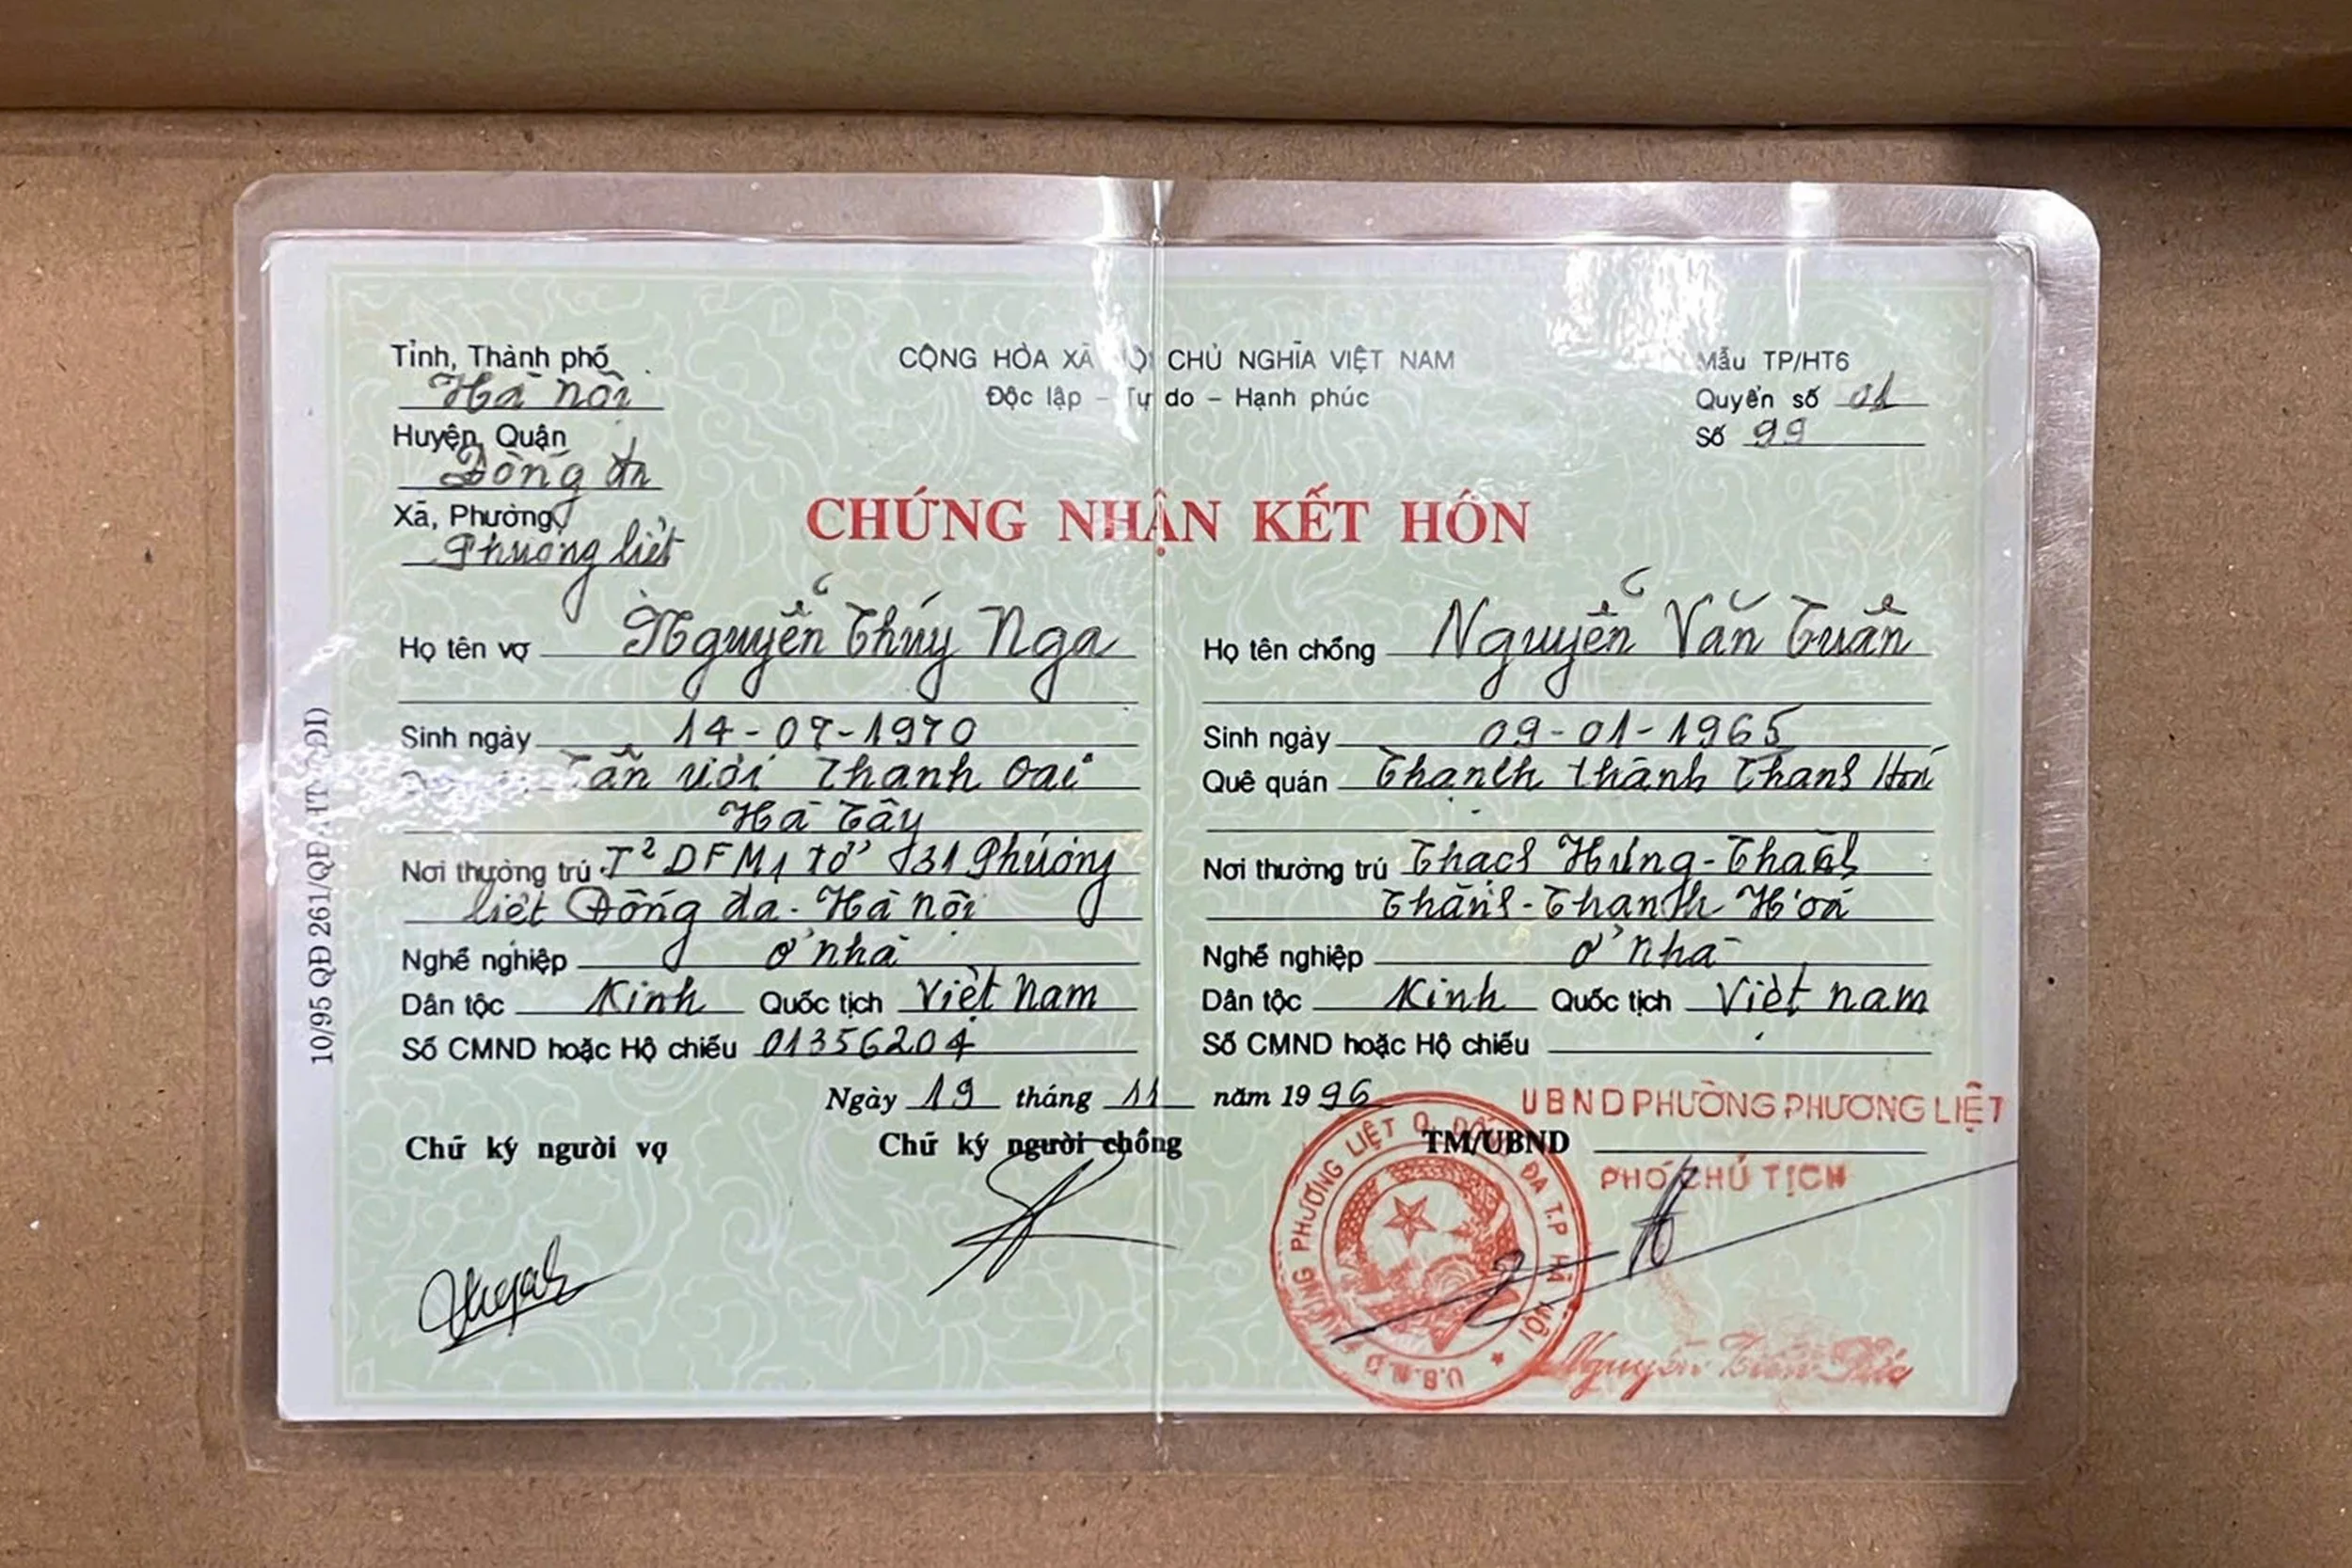 Tỉnh, Thành phố
Hà Nội
Huyện, Quận
Đống
Xã, Phường
Phương liệt
CỘNG HÒA XÃ HỘI CHỦ NGHĨA VIỆT NAM
Độc lập - Tự do - Hạnh phúc
Mẫu TP/HT6
Quyển số 01
Số 99
CHỨNG NHẬN KẾT HÔN
Họ tên vợ Nguyễn Thúy Nga
Sinh ngày 14-07-1970
Thanh Oai
Hà Tây
Nơi thường trú T² DFM1 tổ 31 Phương
liệt Đống đa - Hà nội
Nghề nghiệp ở nhà
Dân tộc Kinh Quốc tịch Việt Nam
Số CMND hoặc Hộ chiếu 01356204
Họ tên chồng Nguyễn Văn Tuấn
Sinh ngày 09-01-1965
Quê quán Thạch thành Thanh Hoá
Nơi thường trú Thạch Hưng - Thạch
Thành - Thanh Hoá
Nghề nghiệp ở nhà
Dân tộc Kinh Quốc tịch Việt nam
Số CMND hoặc Hộ chiếu
Ngày 19 tháng 11 năm 1996
Chữ ký người vợ
Chữ ký người chồng
TM/UBND
UBND PHƯỜNG PHƯƠNG LIỆT
PHÓ CHỦ TỊCH
U.B.N.D PHƯỜNG PHƯƠNG LIỆT Q. ĐỐNG ĐA T.P HÀ NỘI
Nguyễn
10/95 QĐ 261/QĐ-HT